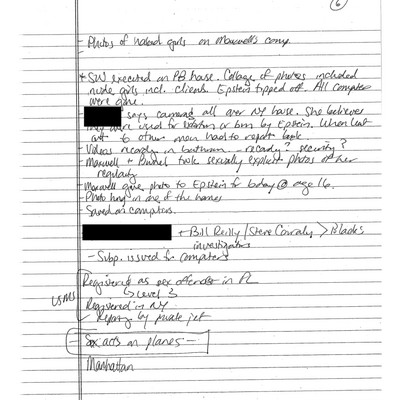 6
- Photos of naked girls on Maxwell's comp.
* SW executed on PB house. Collage of photos included
nude girls incl. clients. Epstein tipped off. All computers
were gone.
says cameras all over NY house. She believes
they were used for extortion or bm by Epstein. When lent
out to other men had to report back.
- Videos recording in bathroom - recording? security?
- Maxwell + took sexually explicit photos of her
regularly
- Maxwell gave photo to Epstein for bday @ age 16.
- Photo hung in one of the homes
- Saved on computers.
+ Bill Reilly / Steve > Black's
investigators
- Subp. issued for computers
USMS
Registered as sex offender in FL
↳ Level 3
Registered in NY
- by private jet
- Sex acts on planes -
Manhattan